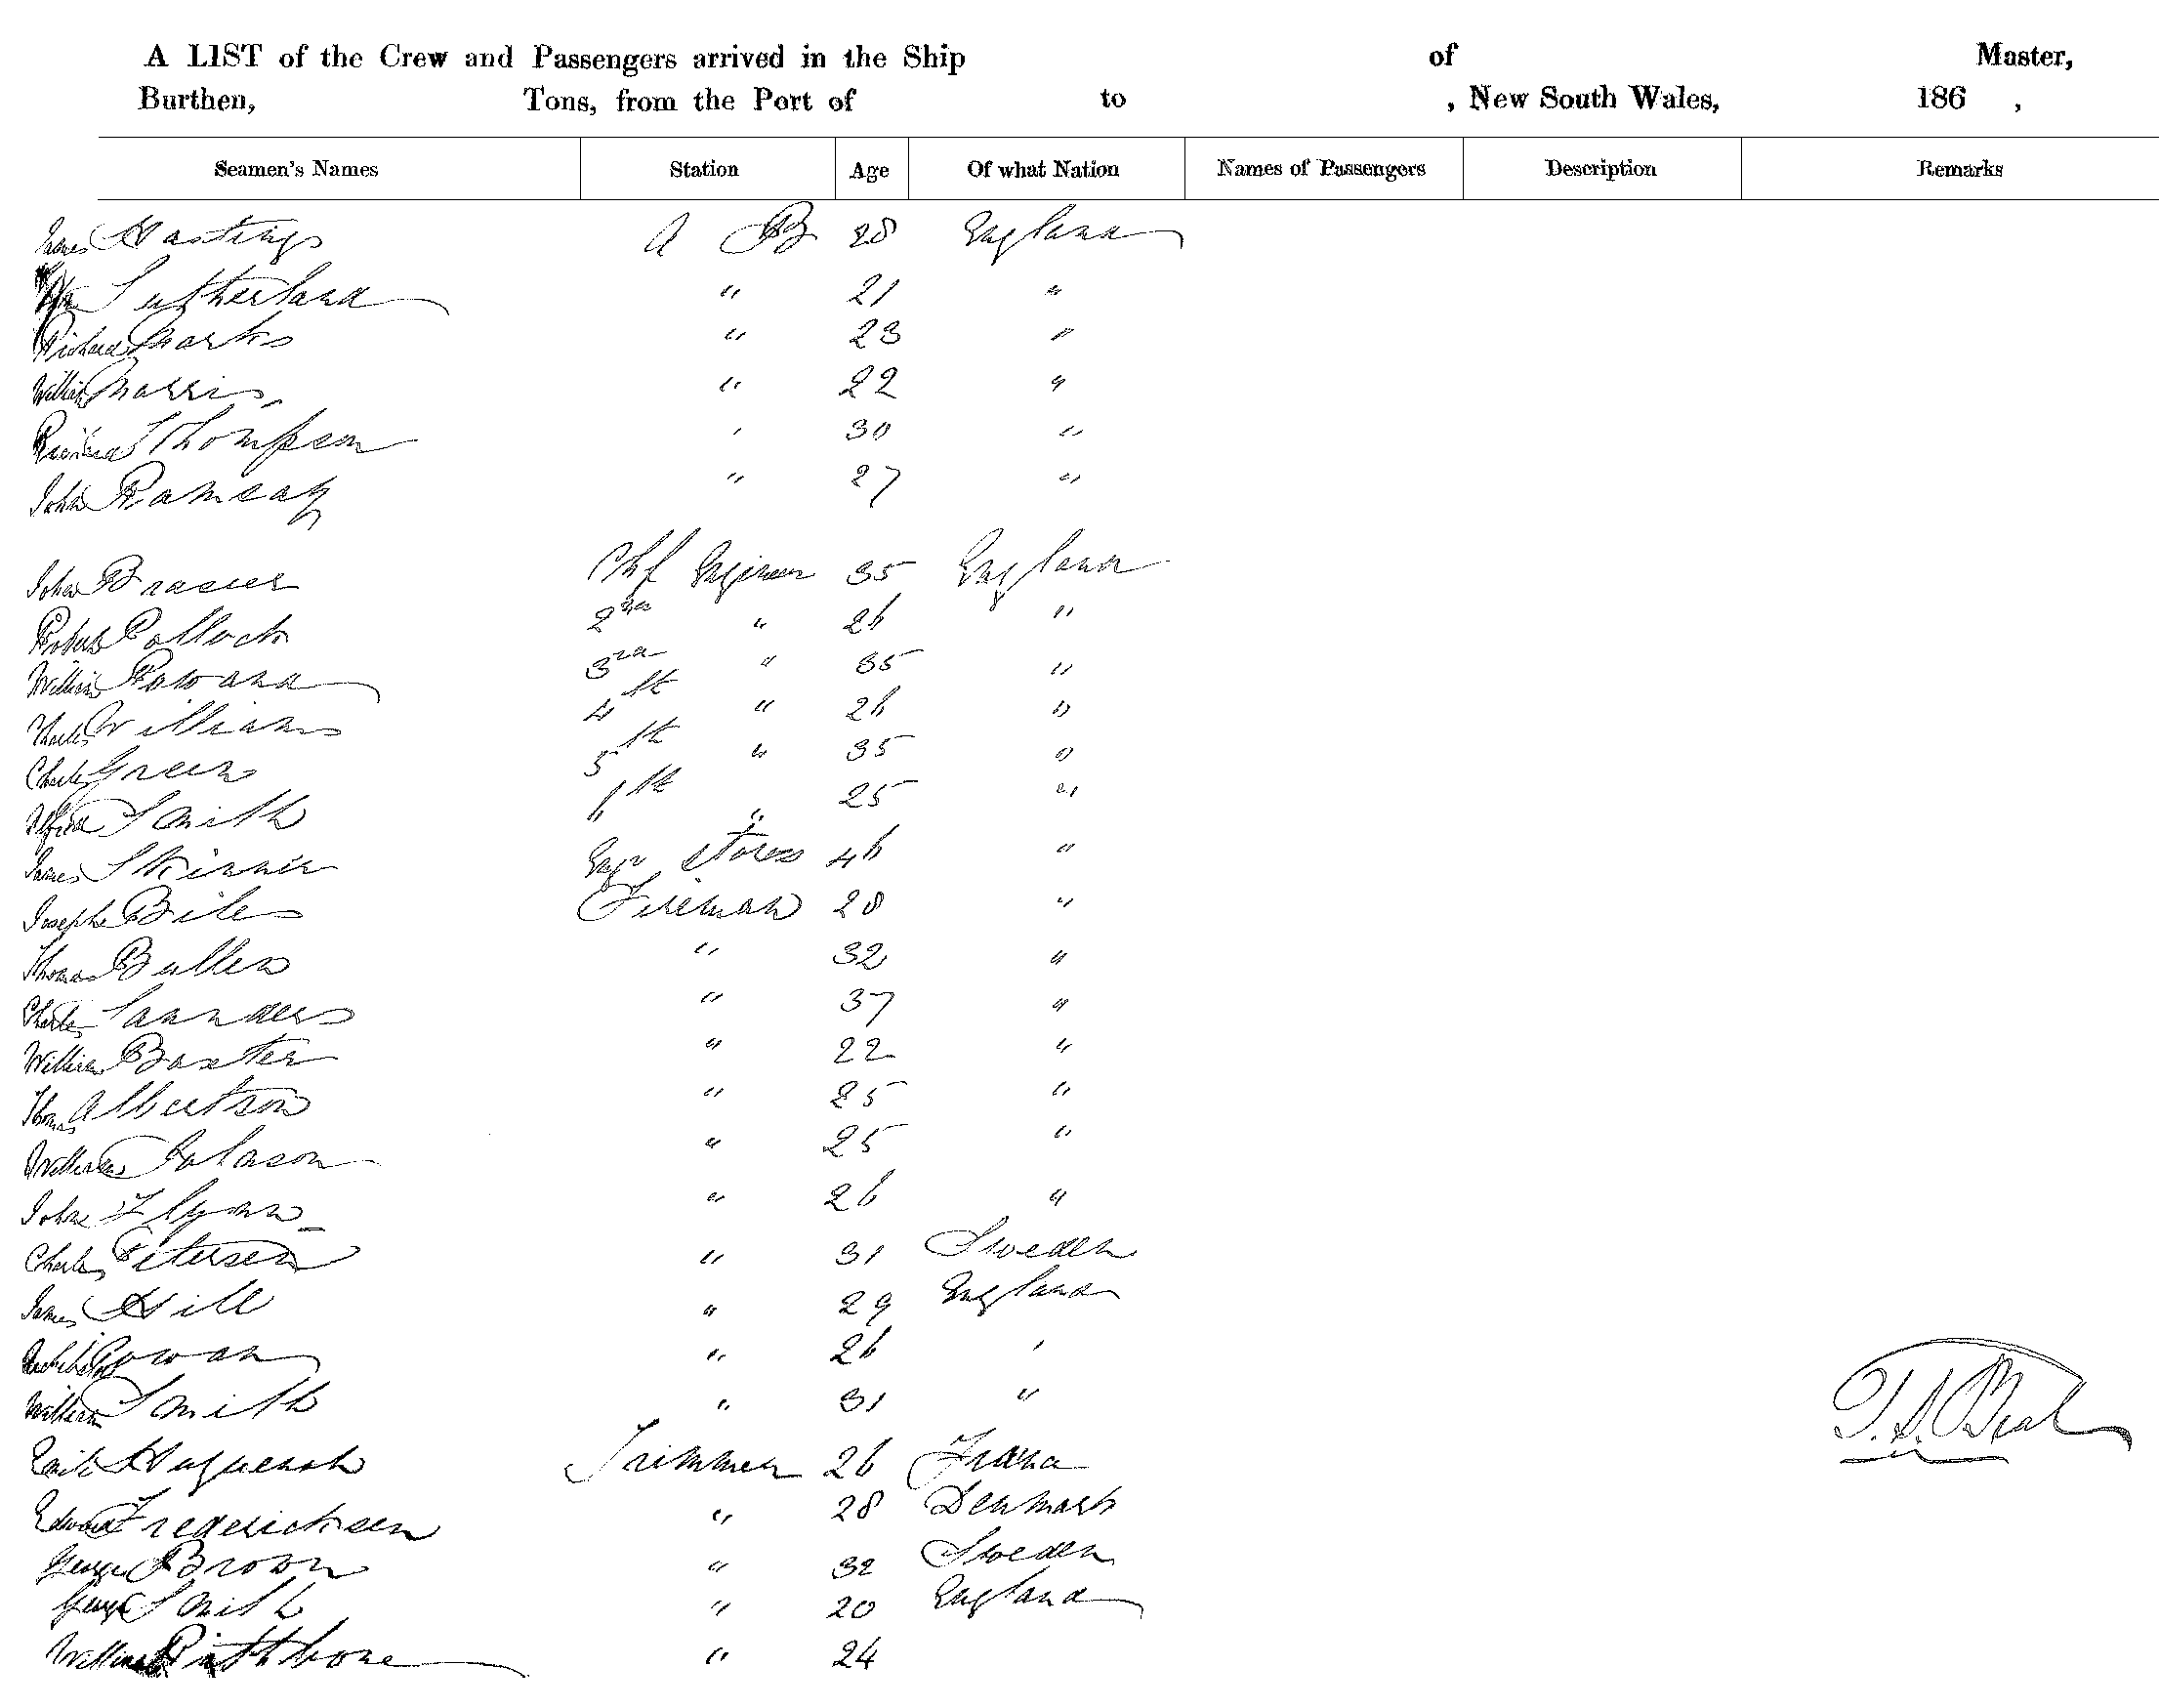 A LIST of the Crew and Passengers arrived in the Ship of Master,
Burthen, Tons, from the Port of to , New South Wales, 186 ,
Seamen's Names Station Age Of what Nation Names of Passengers Description Remarks
James Hastings A B 28 England
Wm Sutherland " 21 "
Richard Sparks " 23 "
William Morris " 22 "
Thompson ' 30 "
John Ramsay " 27 "
John Brasier Chf Engineer 35 England
Robert Pollock 2nd " 26 "
William Rowand 3rd " 35 "
Charles Williams 4th " 26 "
Charles Green 5th " 35 "
Alfred Smith 6th " 25 "
James Skinner Engr Stores 46 "
Joseph Biles Fireman 28 "
Thomas Bullen " 32 "
Charles Saunders " 37 "
William Baxter " 22 "
Thomas Albertson " 25 "
William Johnson " 25 "
John Flynn " 26 "
Charles Petersen " 31 Sweden
James Hill " 29 England
Archibald Gowan " 26 '
William Smith " 31 "
Emile Huguenoh Trimmer 26 France
Edward Fredericksen " 28 Denmark
George Brown " 32 Sweden
George Smith " 20 England
William Rathbone " 24
T. A. Beal